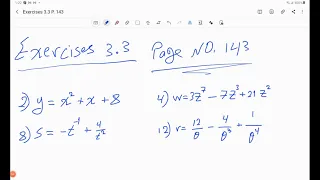 Exercises 3.3 P. 143
Exercises 3.3 Page NO. 143
2) y = x² + x + 8
4) w = 3z⁷ - 7z³ + 21z²
8) s = -t⁻¹ + 4/t²
12) r = 12/θ - 4/θ³ + 1/θ⁴